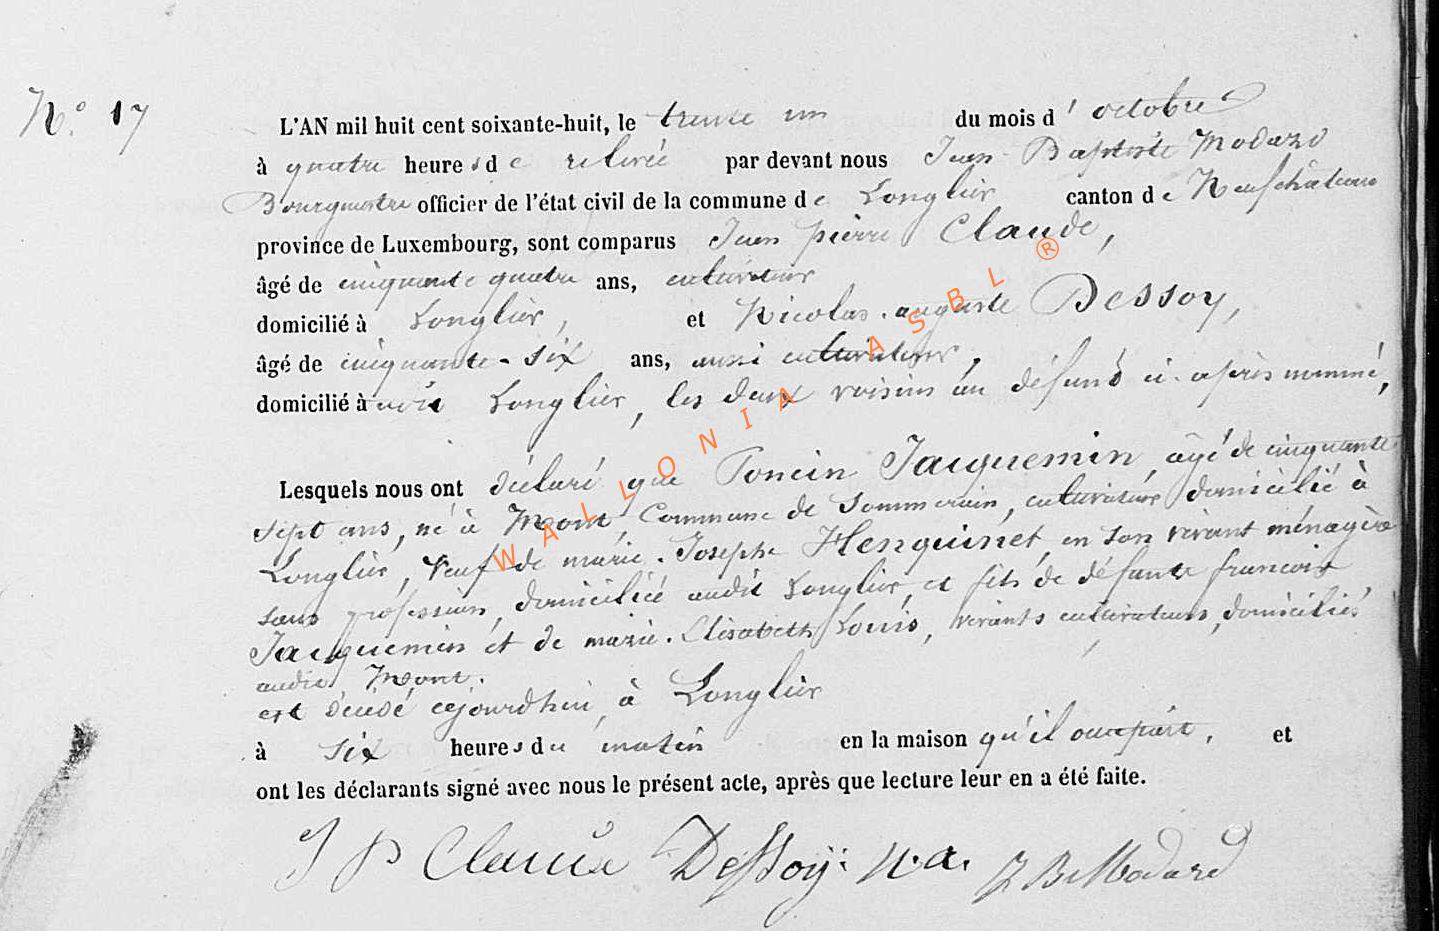 N.° 17
L'AN mil huit cent soixante-huit, le trente un du mois d'octobre
à quatre heures de relevée par devant nous Jean Baptiste Modard
Bourgmestre officier de l'état civil de la commune de Longlier canton de Neufchâteau
province de Luxembourg, sont comparus Jean pierre Claude,
âgé de cinquante quatre ans, cultivateur
domicilié à Longlier, et Nicolas. auguste Dessoy,
âgé de cinquante-six ans, aussi cultivateur,
domicilié à Longlier, les deux voisins du défunt ci-après nommé,
Lesquels nous ont déclaré que Poncin Jacquemin, âgé de cinquante
sept ans, né à Mont Commune de Sommerain, cultivateur domicilié à
Longlier, veuf de marie. Josephe Henquinet, en son vivant ménagère
sans profession, domiciliée audit Longlier, et fils de défunts francois
Jacquemin et de marie. Elisabeth Louis, vivants cultivateurs, domiciliés
audit Mont.
est décédé cejourd'hui, à Longlier
à six heures du matin en la maison qu'il occupait, et
ont les déclarants signé avec nous le présent acte, après que lecture leur en a été faite.
J P Claude Dessoy: n. a. J B Modard
WALLONIA ASBL ®